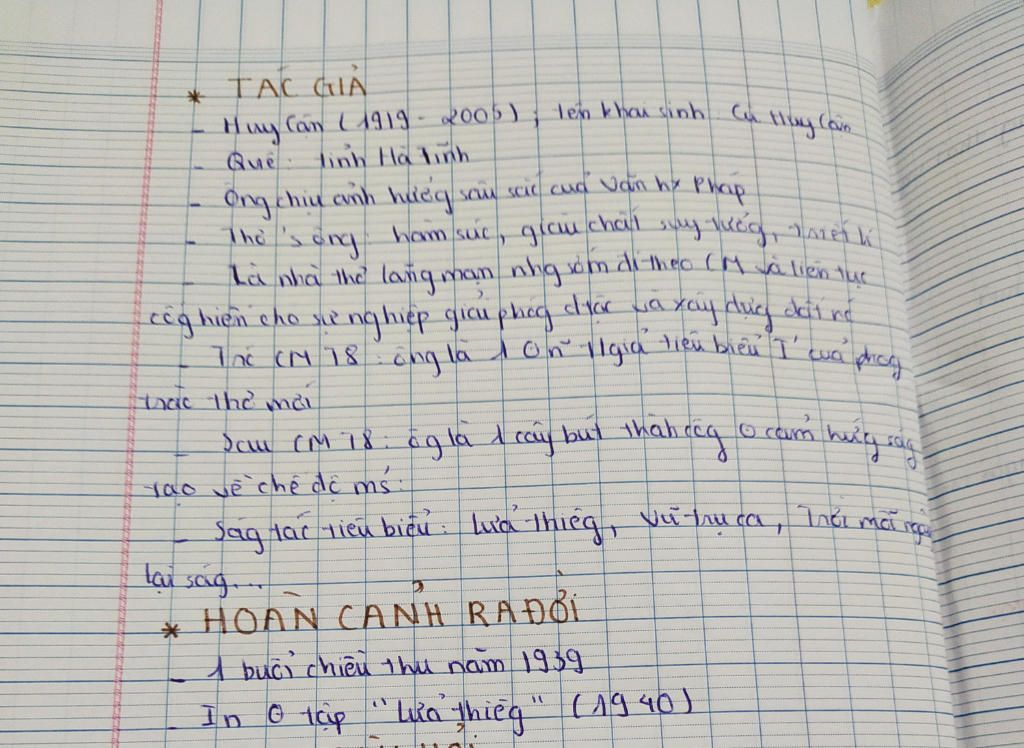 * TÁC GIẢ
- Huy Cận (1919 - 2005), tên khai sinh Cù Huy Cận
- Quê: tỉnh Hà Tĩnh
- Ông chịu ảnh hưởg sâu sắc cuả văn hx Pháp
- Thơ ông: hàm súc, giàu chất suy tưởg, triết lí
- Là nhà thơ lãng mạn nhg sớm đi theo CM và liên tục
cốg hiến cho sự nghiệp giải phóg dtộc và xây dựg đất nc
- Trc CM T8: ông là 1 tgiả tiêu biểu cuả phog
trào thơ mới
- Sau CM T8: ôg là 1 cây bút thành côg cảm hứg ság
tạo về chế độ ms:
- Ság tác tiêu biểu: Lửa thiêg, Vũ trụ ca, Trời mỗi ngày
lại ság...
* HOÀN CẢNH RA ĐỜI
- 1 buổi chiều thu năm 1939
- In tập "Lửa thiêg" (1940)